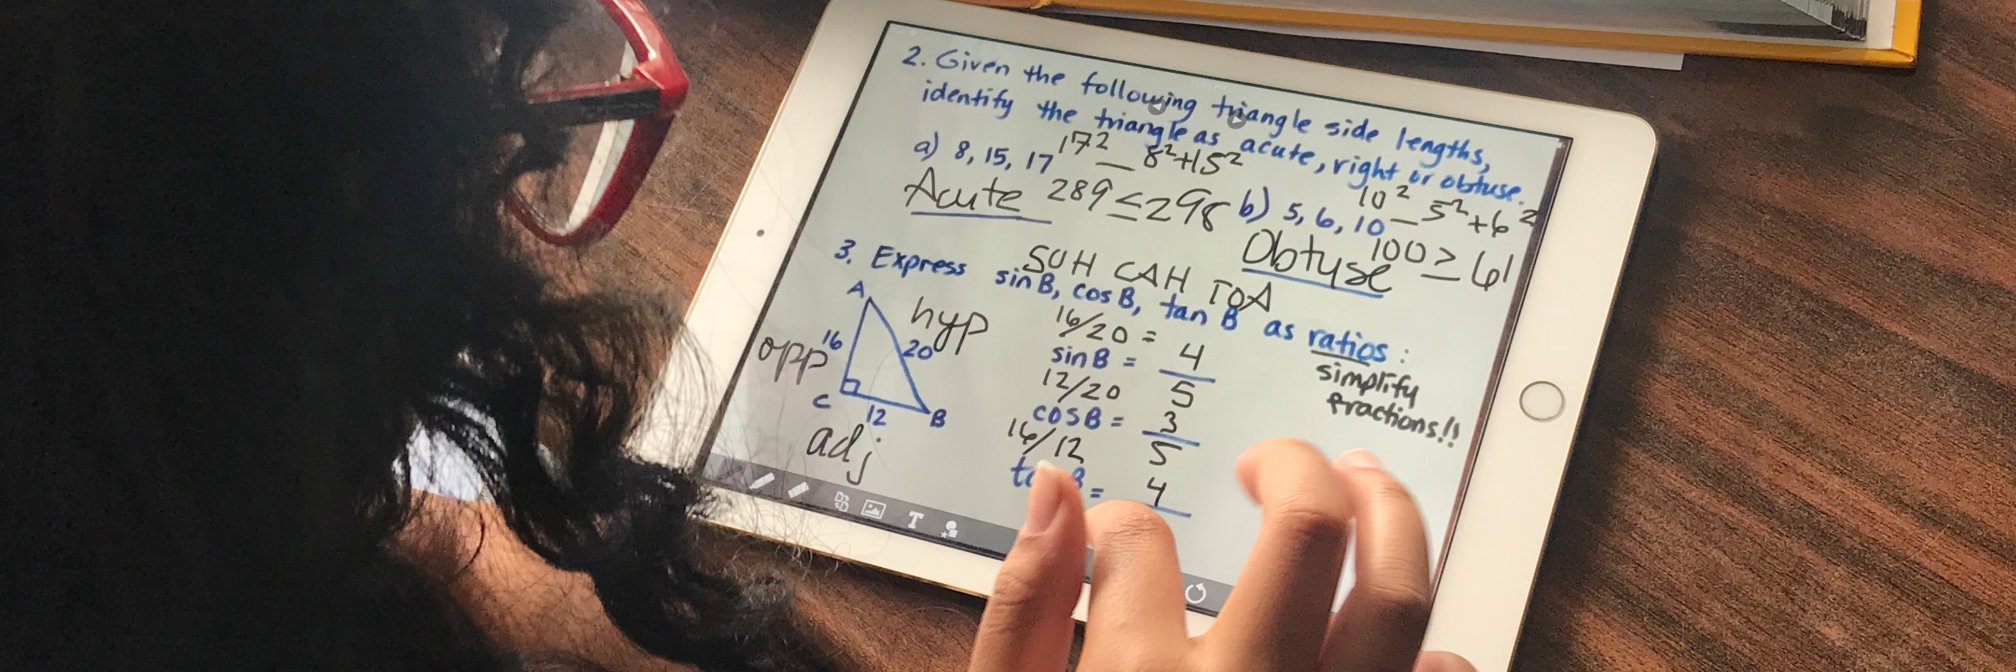 2. Given the following triangle side lengths,
identify the triangle as acute, right or obtuse.
a) 8, 15, 17
17² — 8²+15²
Acute
289 ≤ 298
b) 5, 6, 10
10² — 5²+6²
Obtuse
100 ≥ 61
SOH CAH TOA
3. Express sin B, cos B, tan B as ratios:
simplify
fractions!!
A
16
opp
hyp
20
C
12
B
adj
16/20 =
sin B = 4
5
12/20
cos B = 3
5
16/12
= 4
T